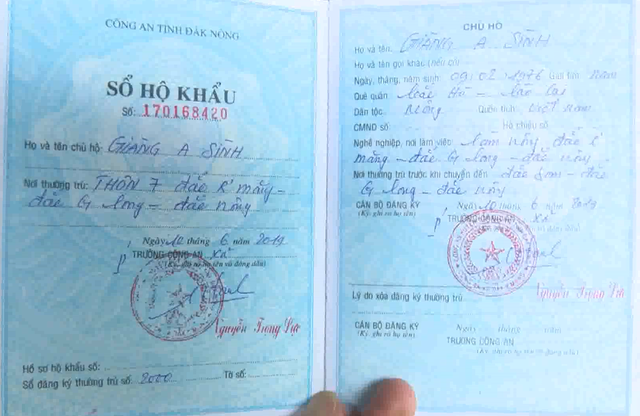 CÔNG AN TỈNH ĐĂK NÔNG
SỔ HỘ KHẨU
Số: 170168420
Họ và tên chủ hộ: GIÀNG A SÌNH
Nơi thường trú: THÔN 7 đắk R' măng -
đắk G long - đắk nông
Ngày 10 tháng 6 năm 2019
TRƯỞNG CÔNG AN xã
(Ký, ghi rõ họ tên và đóng dấu)
Nguyễn Trọng Lực
Hồ sơ hộ khẩu số:
Sổ đăng ký thường trú số: 2000 Tờ số:
CHỦ HỘ
Họ và tên: GIÀNG A SÌNH
Họ và tên gọi khác (nếu có):
Ngày, tháng, năm sinh: 09.02.1976 Giới tính: Nam
Quê quán: Hà - Lào Cai
Dân tộc: Mông Quốc tịch: Việt Nam
CMND số: Hộ chiếu số:
Nghề nghiệp, nơi làm việc: Làm nông, đắk R'
măng - đắk G long - đắk nông
Nơi thường trú trước khi chuyển đến: đắk Som - đắk
G long - đắk nông
Ngày 10 tháng 6 năm 2019
CÁN BỘ ĐĂNG KÝ TRƯỞNG CÔNG AN xã
(Ký, ghi rõ họ tên)
Lý do xóa đăng ký thường trú:
Nguyễn Trọng Lực
Ngày tháng năm
CÁN BỘ ĐĂNG KÝ TRƯỞNG CÔNG AN
(Ký, ghi rõ họ tên) (Ký, ghi rõ họ tên và đóng dấu)